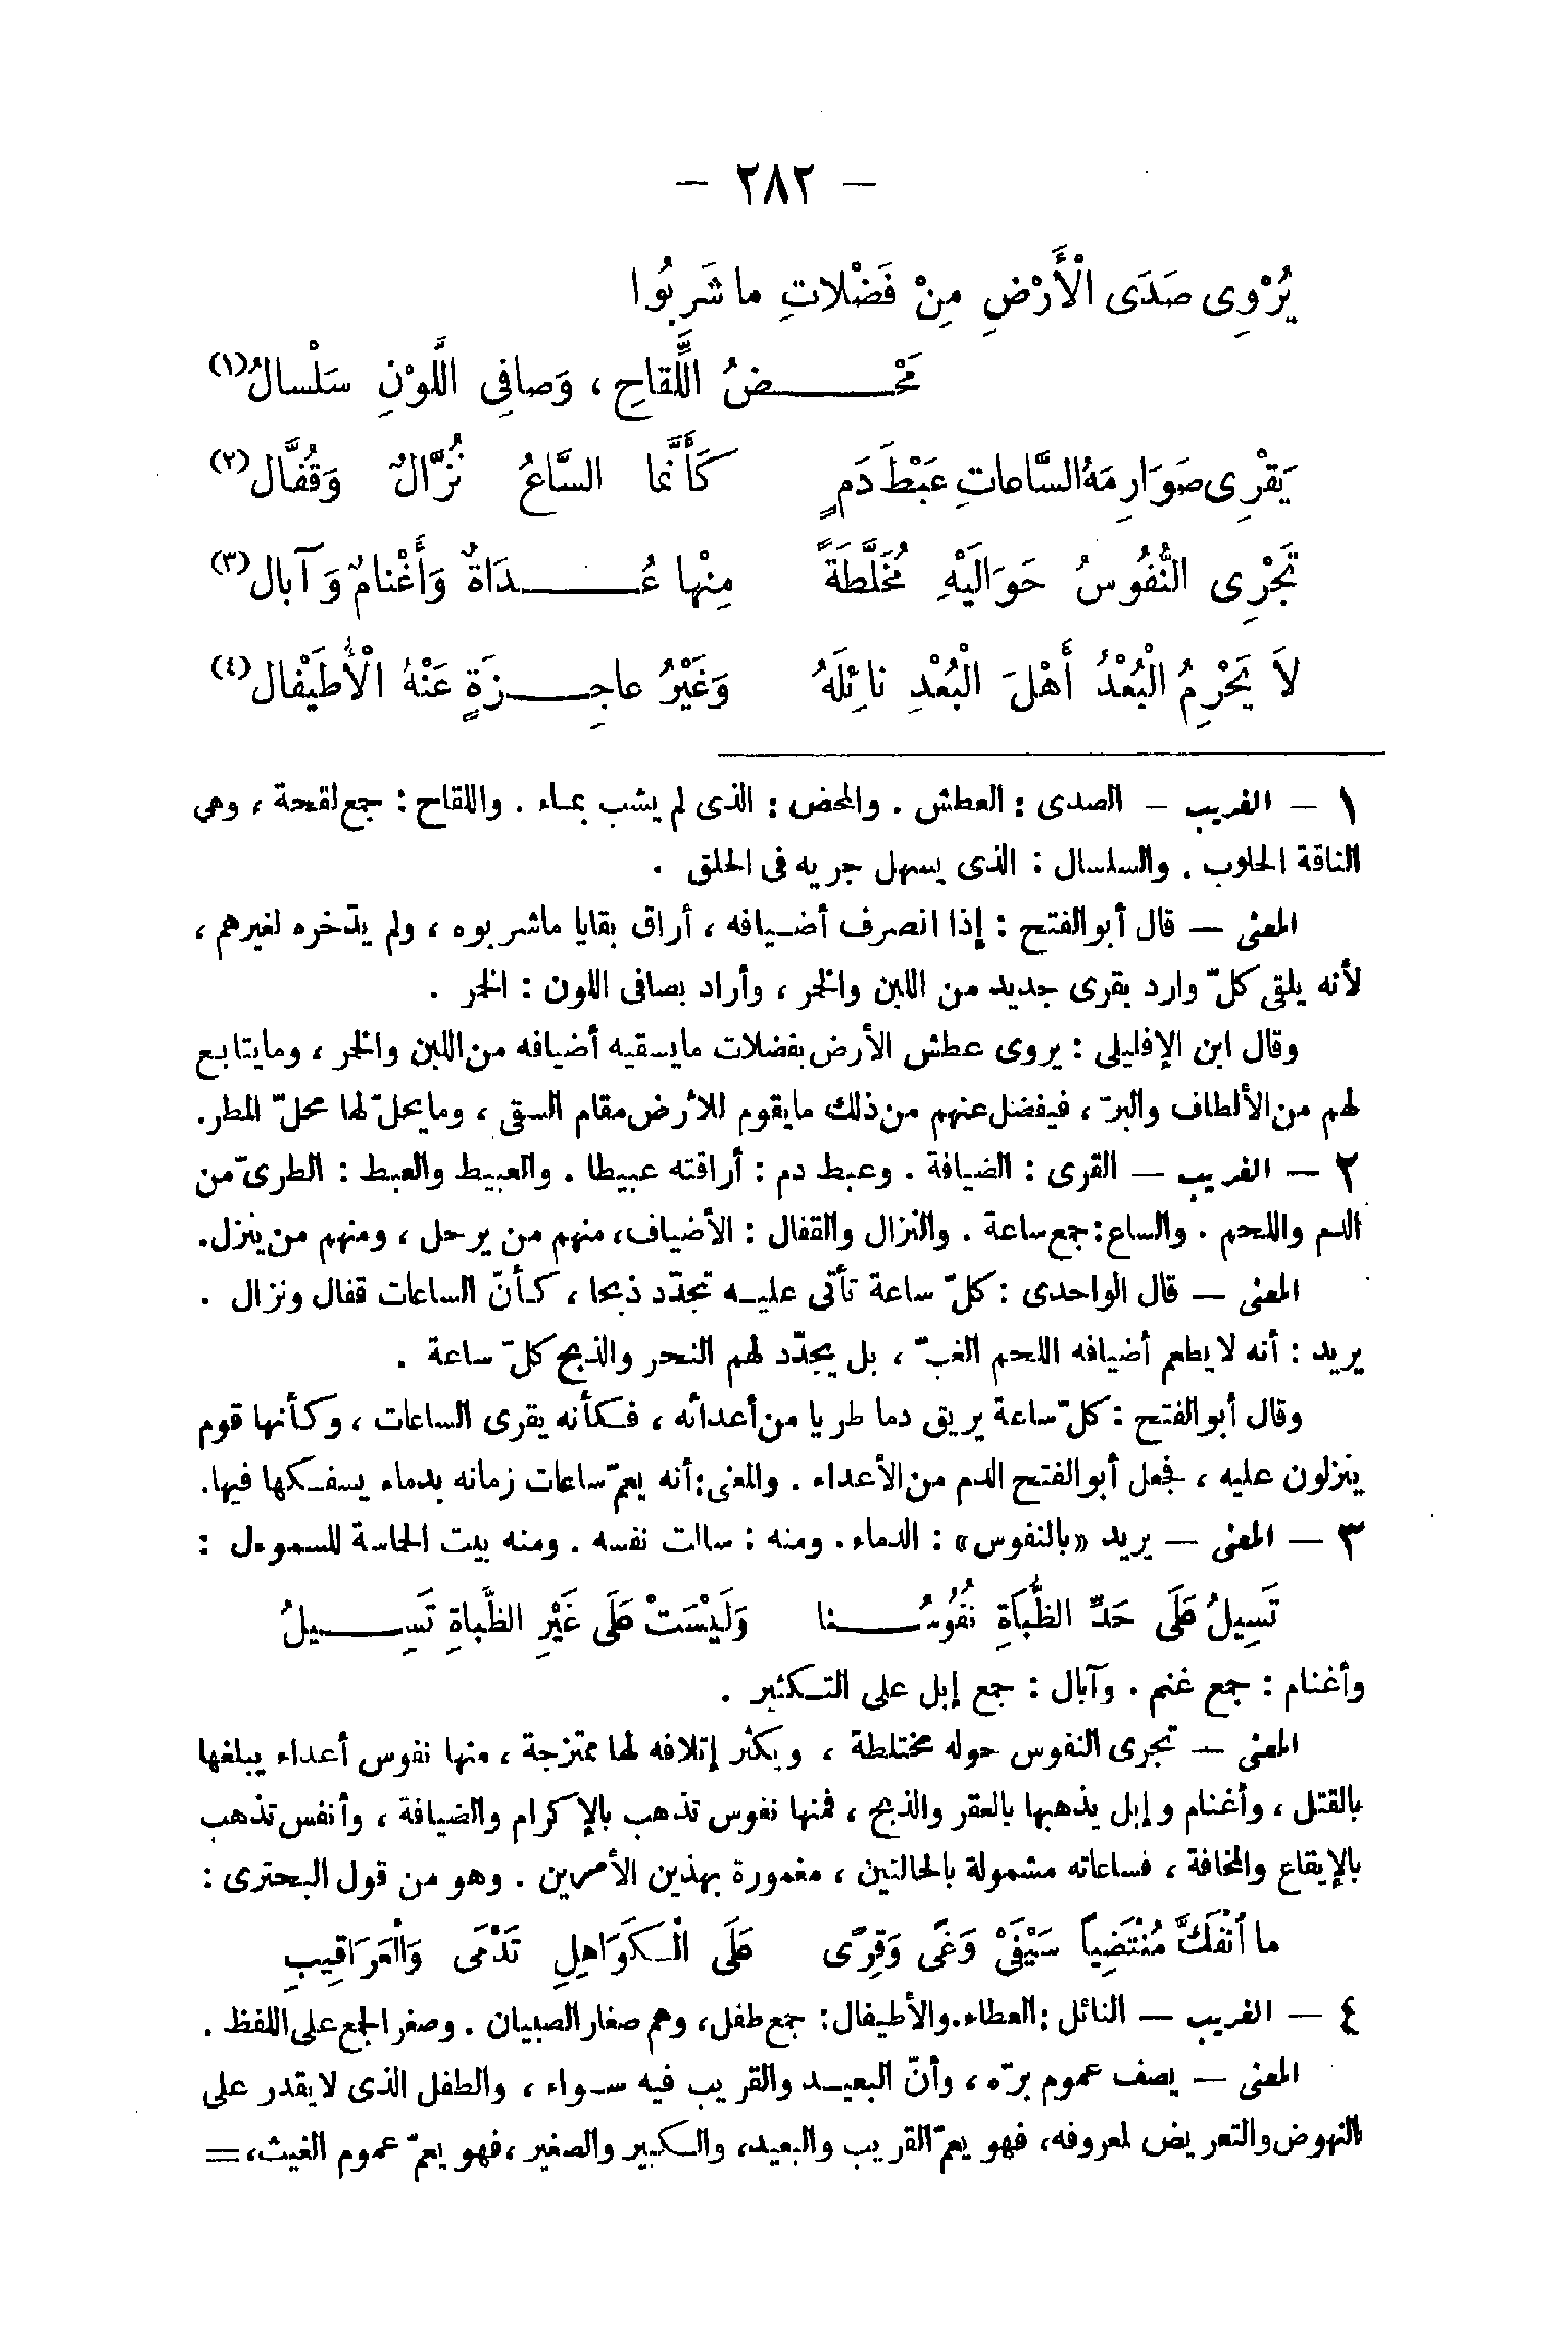 – ٢٨٢ –
يُرْوِى صَدَى الْأَرْضِ مِنْ فَضْلاتِ ما شَرِبُوا
مَحْــــضُ اللِّقاحِ ، وَصافِى اللَّوْنِ سَلْسالُ(١)
يَقْرِى صَوَارِمَهُ السَّاعاتِ عَبْطَ دَمٍ كَأَنَّما السَّاعُ نُزَّالٌ وَقُفَّال(٢)
تَجْرِى النُّفُوسُ حَوَالَيْهِ مُخَلَّطَةً مِنْها عُــــدَاةٌ وَأَغْنامٌ وَآبال(٣)
لاَ يَحْرِمُ الْبُعْدُ أَهْلَ الْبُعْدِ نائِلَهُ وَغَيْرُ عاجِــــزَةٍ عَنْهُ الْأُطَيْفال(٤)
١ – الغريب – الصدى : العطش . والمحض : الذى لم يشب بماء . واللقاح : جمع لقحة ، وهى
الناقة الحلوب . والسلسال : الذى يسهل جريه فى الحلق .
المعنى – قال أبو الفتح : إذا انصرف أضيافه ، أراق بقايا ماشربوه ، ولم يدّخره لغيرهم ،
لأنه يلقى كلّ وارد بقرى جديد من اللبن والخمر ، وأراد بصافى اللون : الخمر .
وقال ابن الإفليلى : يروى عطش الأرض بفضلات مايسقيه أضيافه من اللبن والخمر ، ومايتابع
لهم من الألطاف والبرّ ، فيفضل عنهم من ذلك مايقوم للأرض مقام السقى ، ومايحلّ لها محلّ المطر.
٢ – الغريب – القرى : الضيافة . وعبط دم : أراقته عبيطا . والعبيط والعبط : الطرىّ من
الدم واللحم . والساع : جمع ساعة . والنزال والقفال : الأضياف، منهم من يرحل ، ومنهم من ينزل.
المعنى – قال الواحدى : كلّ ساعة تأتى عليه تجدّد ذبحا ، كأنّ الساعات قفال ونزال .
يريد : أنه لايطعم أضيافه اللحم الغبّ ، بل يجدّد لهم النحر والذبح كلّ ساعة .
وقال أبو الفتح : كلّ ساعة يريق دما طريا من أعدائه ، فكأنه يقرى الساعات ، وكأنها قوم
ينزلون عليه ، فجعل أبو الفتح الدم من الأعداء . والمعنى : أنه يعمّ ساعات زمانه بدماء يسفكها فيها.
٣ – المعنى – يريد «بالنفوس» : الدماء . ومنه : سالت نفسه . ومنه بيت الحماسة للسموءل :
تَسِيلُ عَلَى حَدِّ الظُّبَاةِ نُفُوسُــــنا وَلَيْسَتْ عَلَى غَيْرِ الظُّباةِ تَسِــــيلُ
وأغنام : جمع غنم . وآبال : جمع إبل على التكثير .
المعنى – تجرى النفوس حوله مختلطة ، ويكثر إتلافه لها ممتزجة ، منها نفوس أعداء يبلغها
بالقتل ، وأغنام وإبل يذهبها بالعقر والذبح ، فمنها نفوس تذهب بالإكرام والضيافة ، وأنفس تذهب
بالإيقاع والمخافة ، فساعاته مشمولة بالحالتين ، مغمورة بهذين الأمرين . وهو من قول البحترى :
ما أنْفَكَّ مُنْتَضِياً سَيْفَىْ وَغًى وَقِرًى عَلَى الْكَوَاهِلِ تَدْمَى وَالْعَرَاقِيبِ
٤ – الغريب – النائل : العطاء. والأطيفال : جمع طفل، وهم صغار الصبيان . وصغر الجمع على اللفظ .
المعنى – يصف عموم برّه ، وأنّ البعيد والقريب فيه سواء ، والطفل الذى لايقدر على
النهوض والتعريض لمعروفه، فهو يعمّ القريب والبعيد، والكبير والصغير ، فهو يعمّ عموم الغيث، =